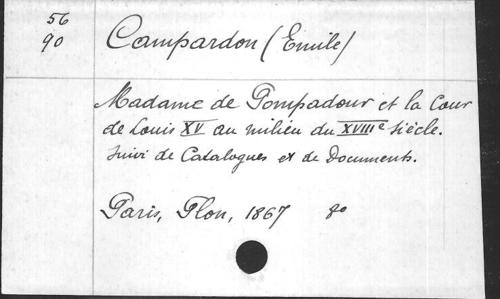 56
90
Campardon (Emile)
Madame de Pompadour et la Cour
de Louis XV au milieu du XVIIIe siècle.
Suivi de Catalogues et de Documents.
Paris, Plon, 1867 8o